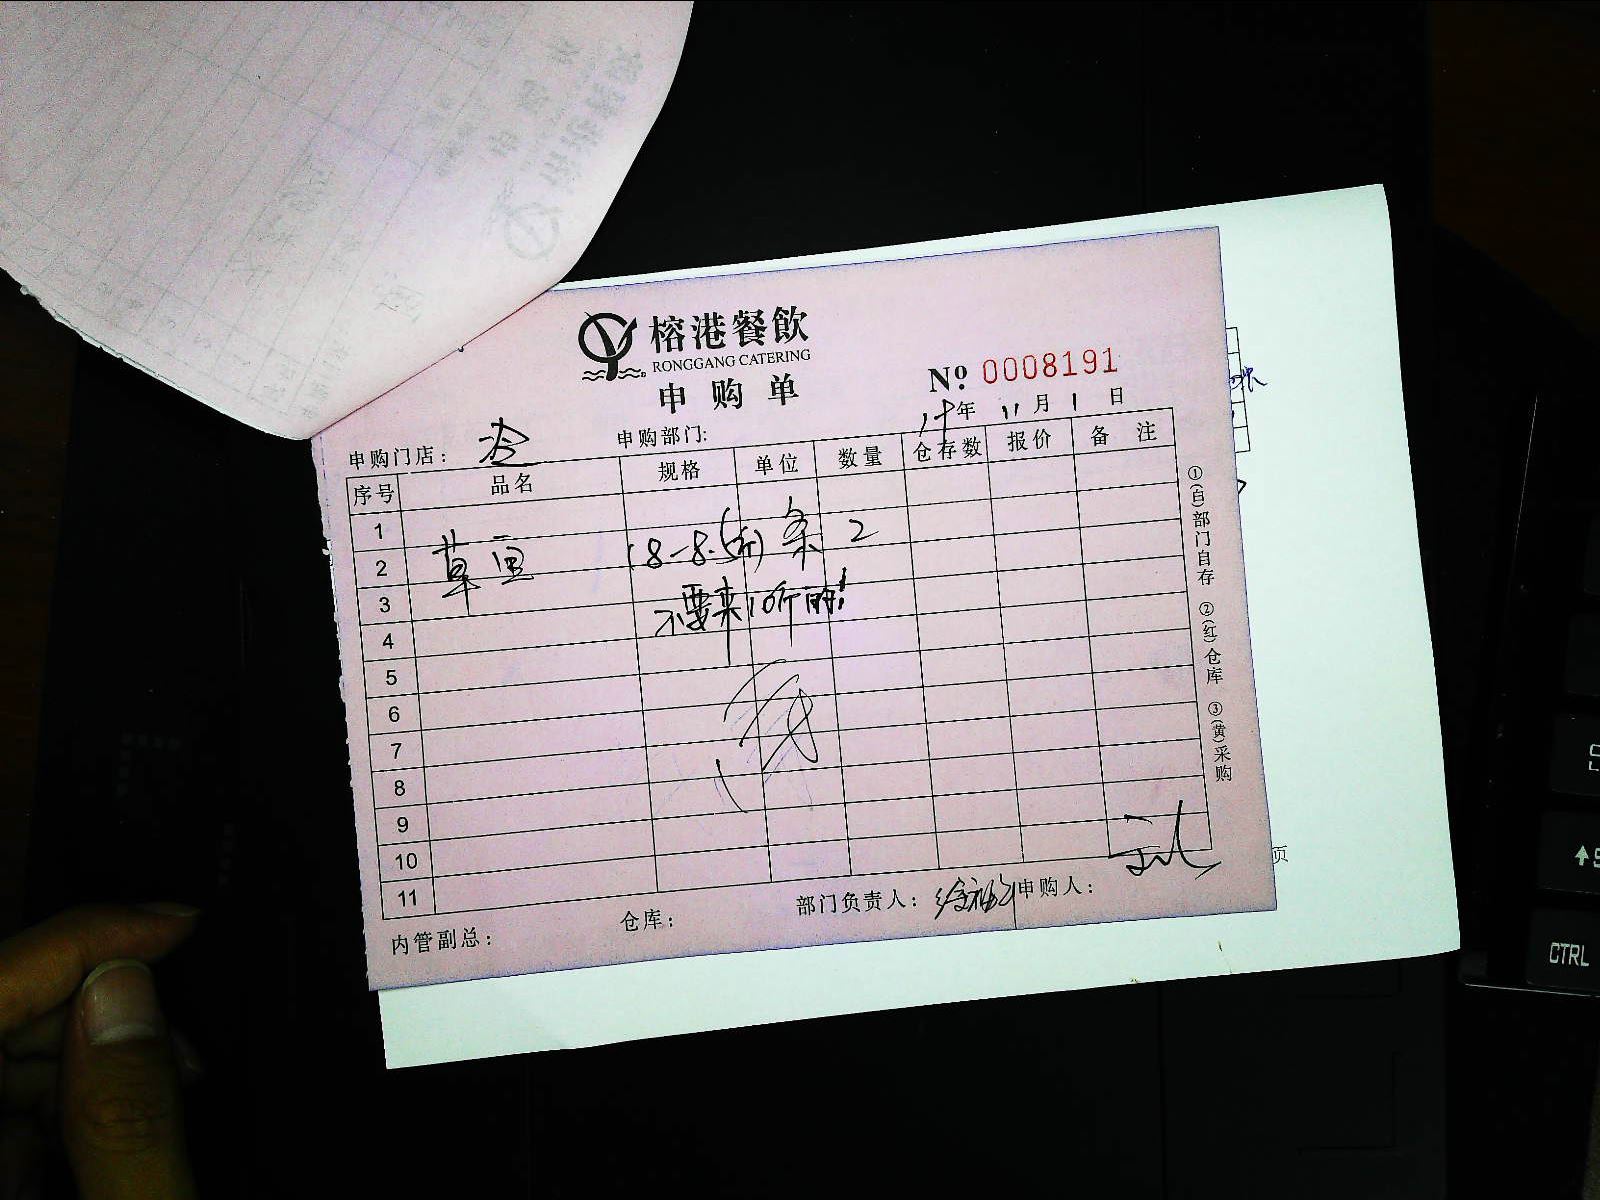 榕港餐飲
RONGGANG CATERING
申购单
№ 0008191
年 11月 1日
申购门店: 冷 申购部门:
序号 品名 规格 单位 数量 仓存数 报价 备注
1
2 草鱼 (8-8.5斤) 条 2
3 不要来10斤的!
4
5
6
7
8
9
10
11
内管副总: 仓库: 部门负责人: 申购人:
①(白)部门自存 ②(红)仓库 ③(黄)采购
页
CTRL